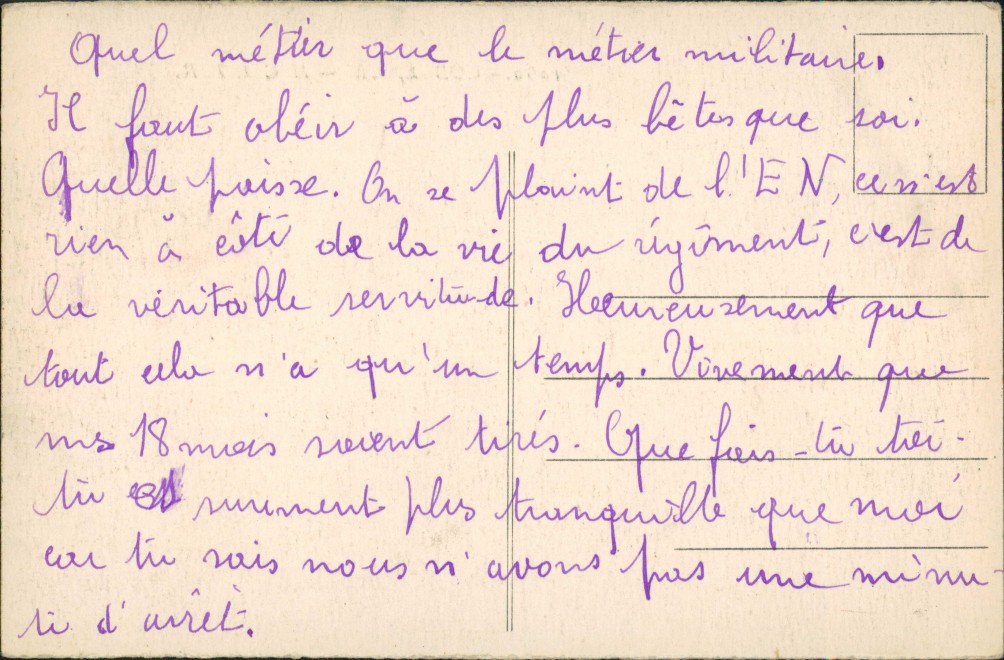 Quel métier que le métier militaire.
Il faut obéir à des plus bêtes que soi.
Quelle poisse. On se plaint de l'EN, ce n'est
rien à côté de la vie du régiment, c'est de
la véritable servitude. Heureusement que
tout cela n'a qu'un temps. Vivement que
mes 18 mois soient tirés. Que fais-tu toi-
tu es surement plus tranquille que moi
car tu sais nous n'avons pas une minu-
te d'arrêt.